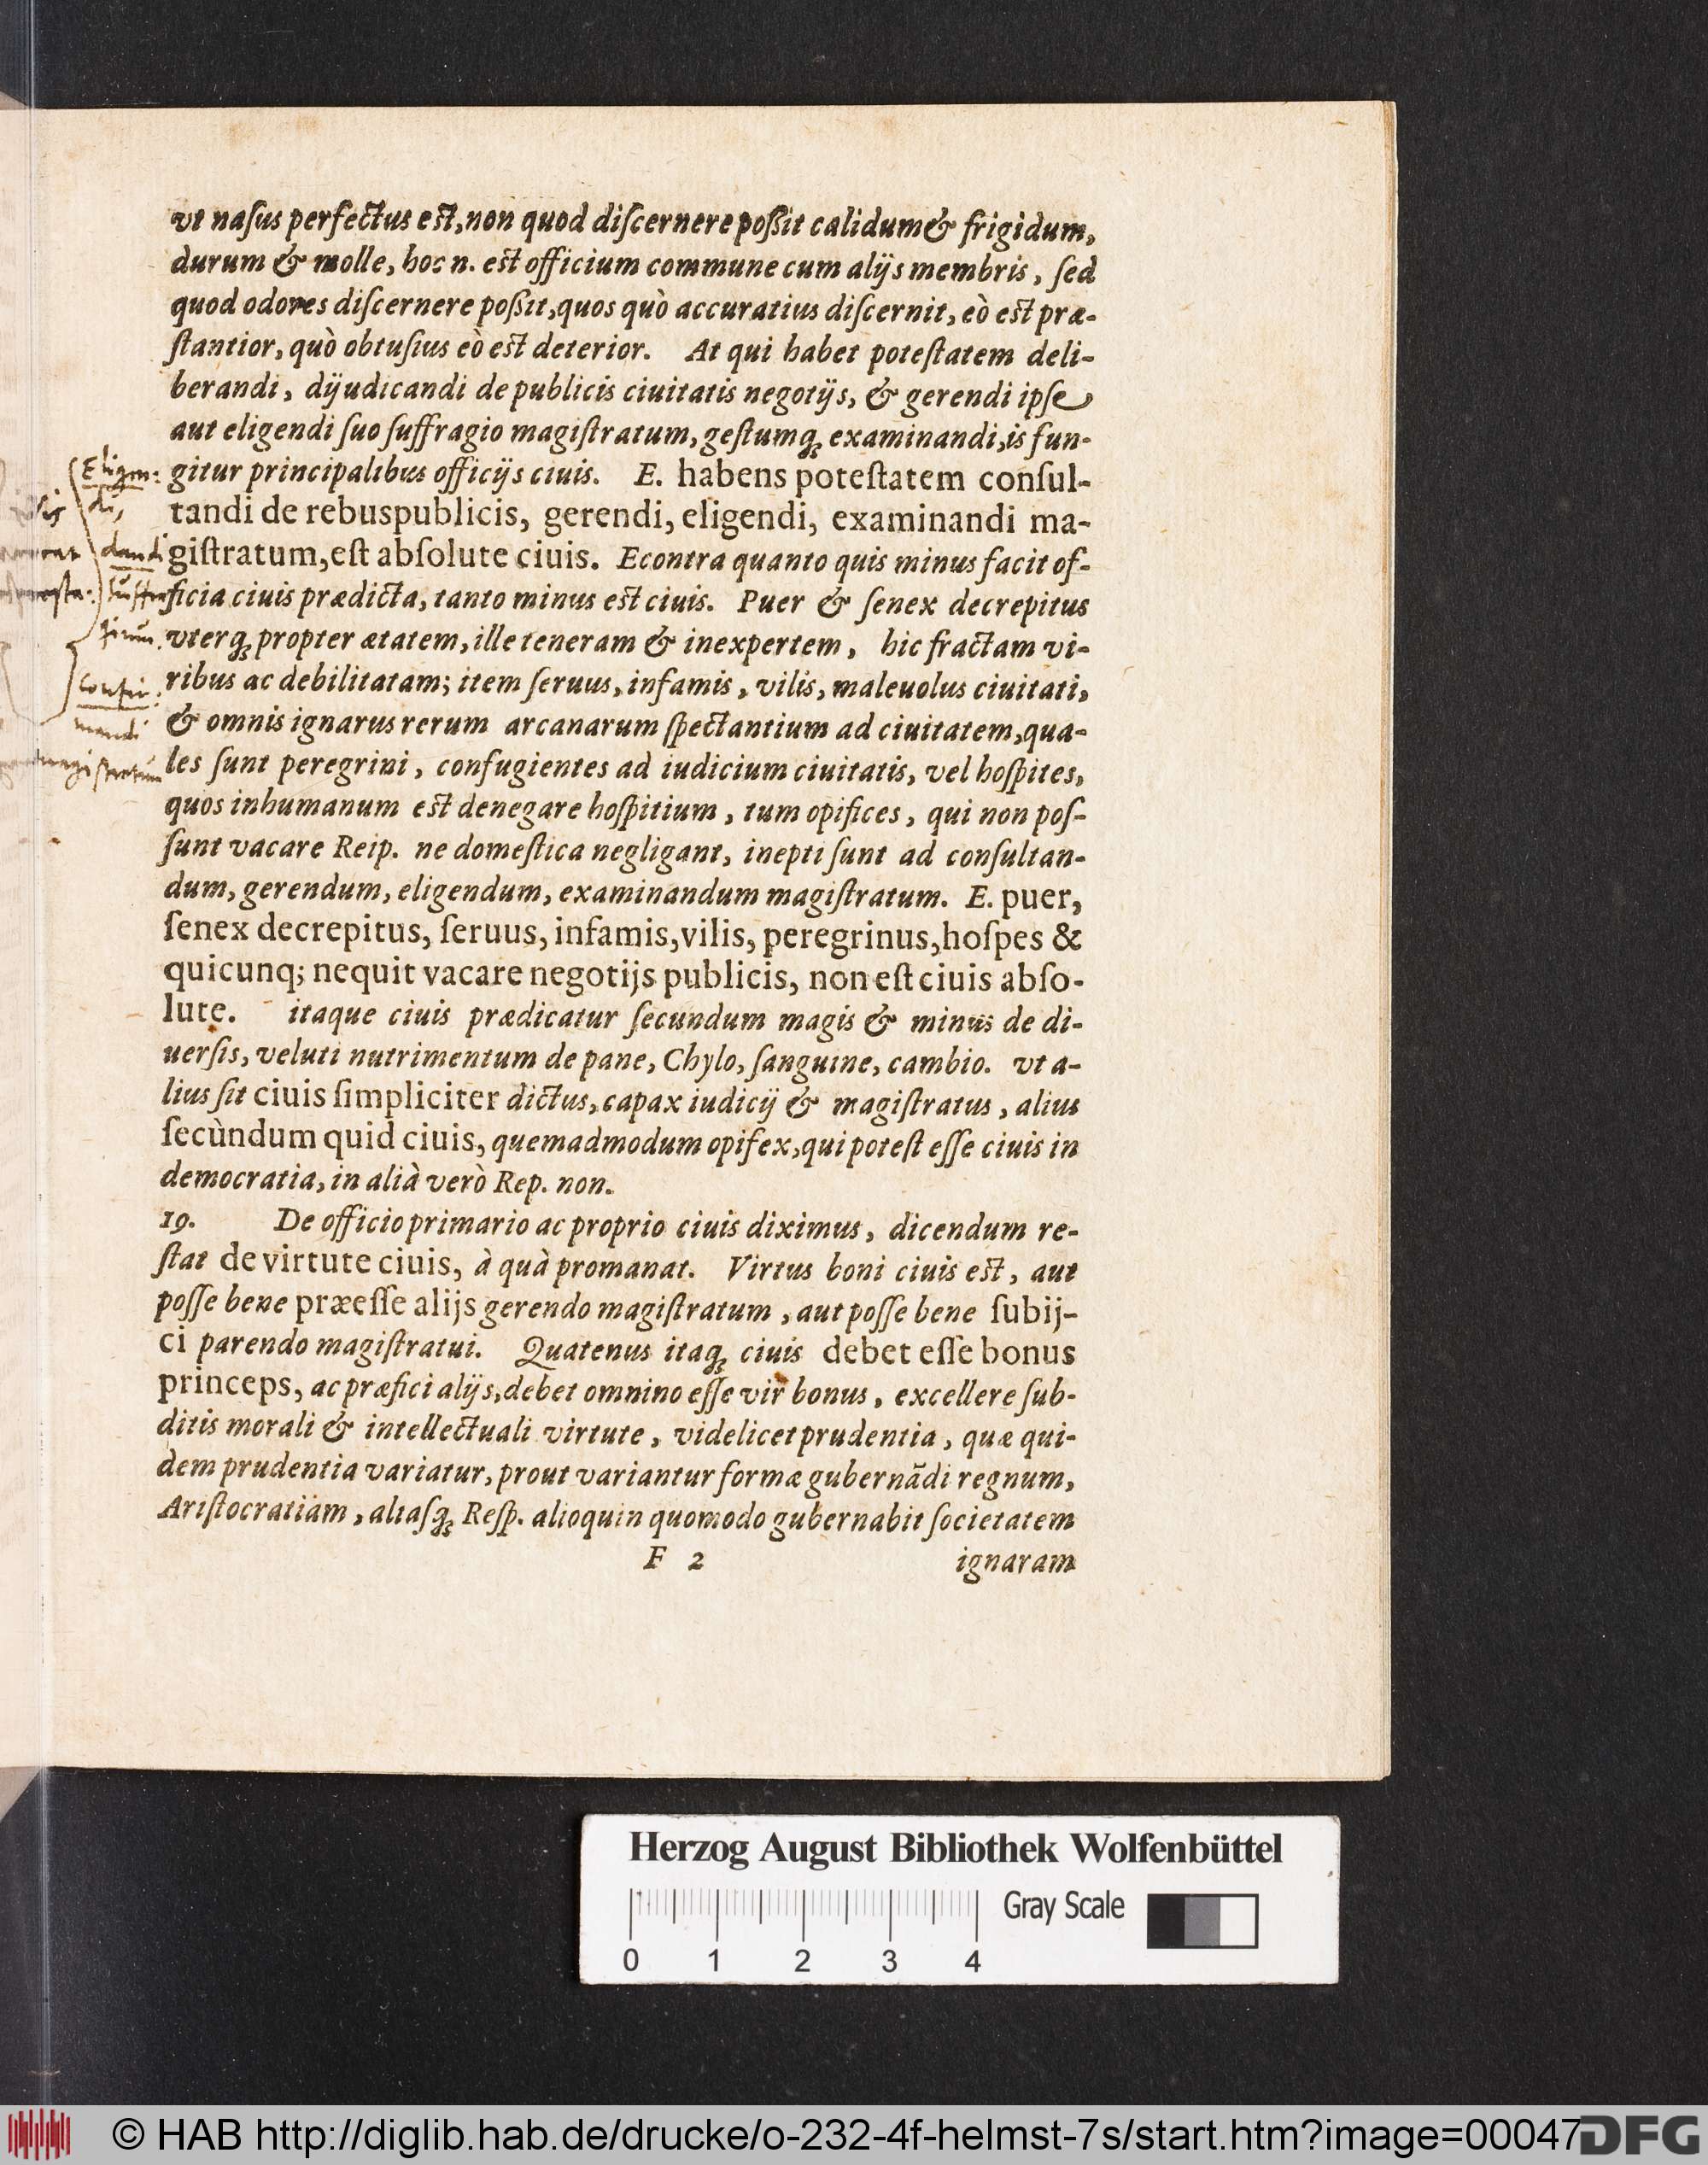 vt naſus perfectus eſt, non quod diſcernere poßit calidum & frigidum,
durum & molle, hoc n. eſt officium commune cum alijs membris, ſed
quod odores diſcernere poßit, quos quò accuratius diſcernit, eò eſt præ-
ſtantior, quò obtuſius eò eſt deterior. At qui habet poteſtatem deli-
berandi, dijudicandi de publicis ciuitatis negotijs, & gerendi ipſe
aut eligendi ſuo ſuffragio magiſtratum, geſtumq́; examinandi, is fun-
gitur principalibus officijs ciuis. E. habens poteſtatem conſul-
tandi de rebuspublicis, gerendi, eligendi, examinandi ma-
giſtratum, eſt abſolute ciuis. Econtra quanto quis minus facit of-
ficia ciuis prædicta, tanto minus eſt ciuis. Puer & ſenex decrepitus
vterq; propter ætatem, ille teneram & inexpertem, hic fractam vi-
ribus ac debilitatam; item ſeruus, infamis, vilis, maleuolus ciuitati,
& omnis ignarus rerum arcanarum ſpectantium ad ciuitatem, qua-
les ſunt peregrini, confugientes ad iudicium ciuitatis, vel hoſpites,
quos inhumanum eſt denegare hoſpitium, tum opifices, qui non poſ-
ſunt vacare Reip. ne domeſtica negligant, inepti ſunt ad conſultan-
dum, gerendum, eligendum, examinandum magiſtratum. E. puer,
ſenex decrepitus, ſeruus, infamis, vilis, peregrinus, hoſpes &
quicunq; nequit vacare negotijs publicis, non eſt ciuis abſo-
lute. itaque ciuis prædicatur ſecundum magis & minus de di-
uerſis, veluti nutrimentum de pane, Chylo, ſanguine, cambio. vt a-
lius ſit ciuis ſimpliciter dictus, capax iudicij & magiſtratus, alius
ſecùndum quid ciuis, quemadmodum opifex, qui poteſt eſſe ciuis in
democratia, in alià verò Rep. non.
19. De officio primario ac proprio ciuis diximus, dicendum re-
ſtat de virtute ciuis, à quà promanat. Virtus boni ciuis eſt, aut
poſſe bene præeſſe alijs gerendo magiſtratum, aut poſſe bene ſubij-
ci parendo magiſtratui. Quatenus itaq; ciuis debet eſſe bonus
princeps, ac præfici alijs, debet omnino eſſe vir bonus, excellere ſub-
ditis morali & intellectuali virtute, videlicet prudentia, quæ qui-
dem prudentia variatur, prout variantur formæ gubernãdi regnum,
Ariſtocratiam, aliaſq; Reſp. alioquin quomodo gubernabit ſocietatem
F 2 ignaram
Eligen:
di,
dandi
ſuffra
confir:
mandi
magiſtratum
Herzog August Bibliothek Wolfenbüttel
Gray Scale
0 1 2 3 4
© HAB http://diglib.hab.de/drucke/o-232-4f-helmst-7s/start.htm?image=00047
DFG